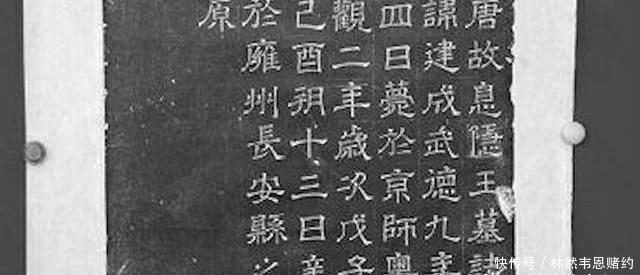 唐故息隱王墓誌
諱建成武德九年
四日薨於京師粵
觀二年歲次戊子
己酉朔十三日辛
於雍州長安縣之
原
快传号 / 林然韦恩赌约